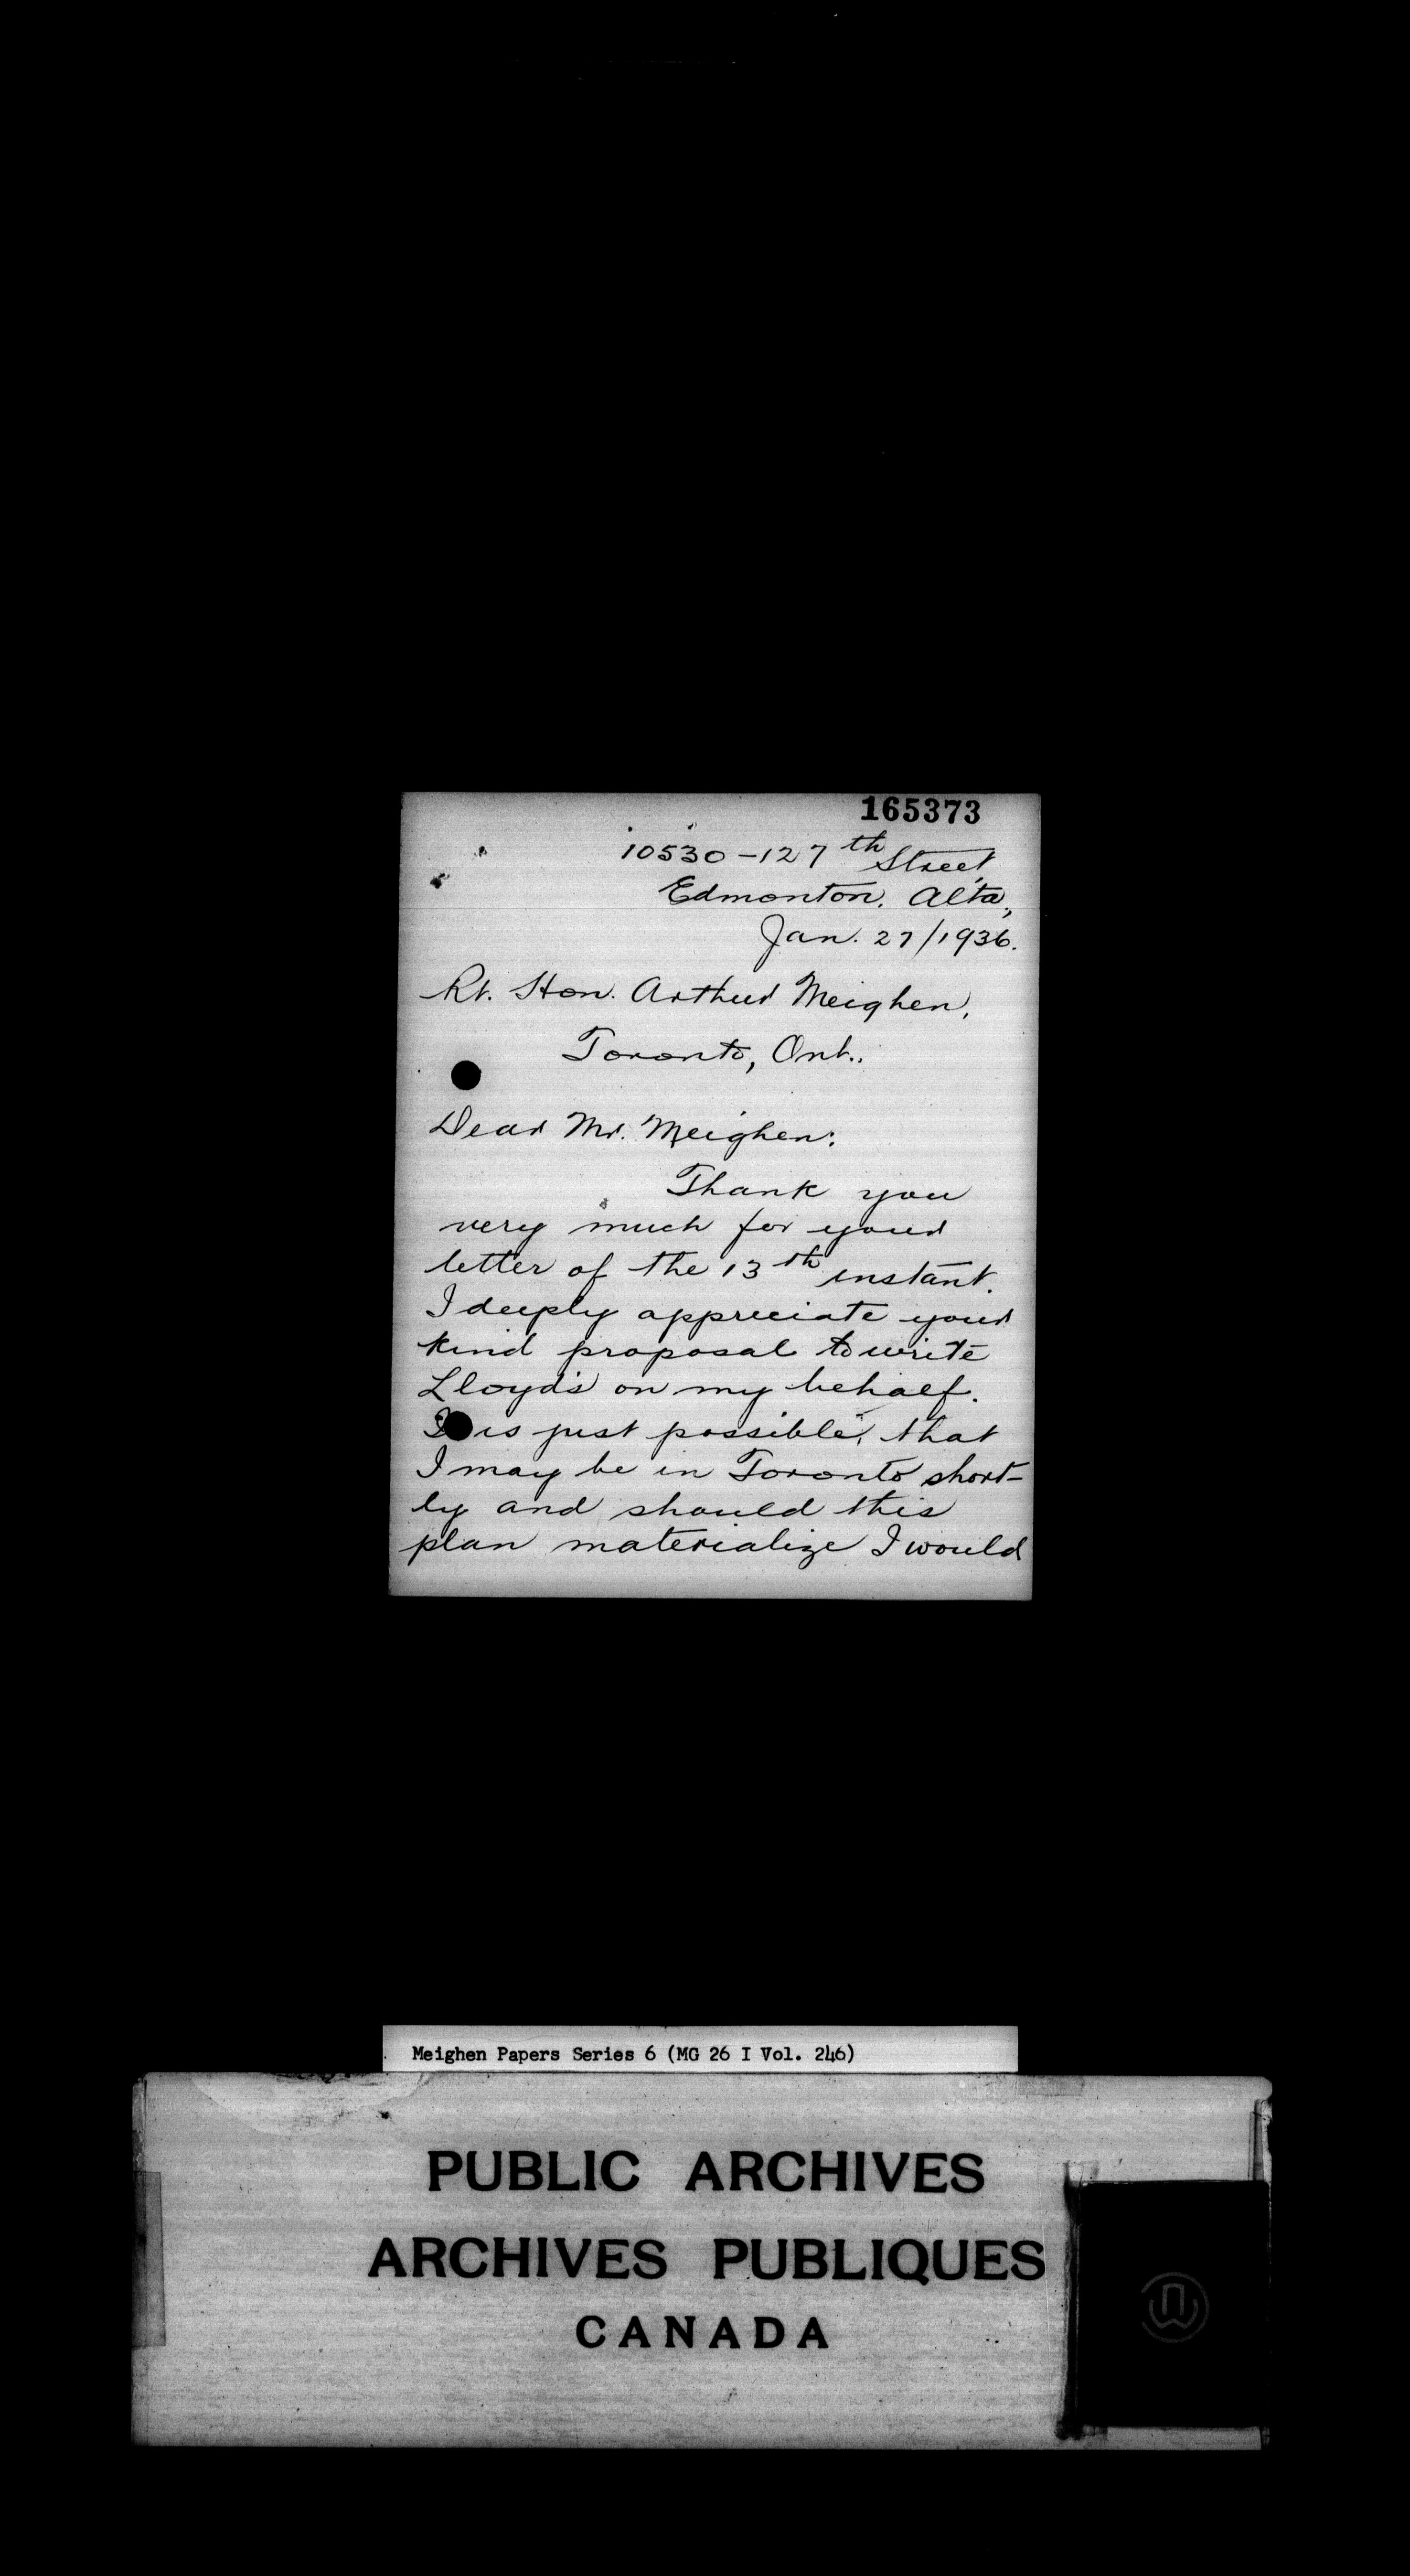 165373
10530-127th Street,
Edmonton, Alta.,
Jan. 27/1936.
Rt. Hon. Arthur Meighen,
Toronto, Ont..
Dear Mr. Meighen:
Thank you
very much for your
letter of the 13th instant.
I deeply appreciate your
kind proposal to write
Lloyd's on my behalf.
is just possible, that
I may be in Toronto short-
ly and should this
plan materialize I would
Meighen Papers Series 6 (MG 26 I Vol. 246)
PUBLIC ARCHIVES
ARCHIVES PUBLIQUES
CANADA